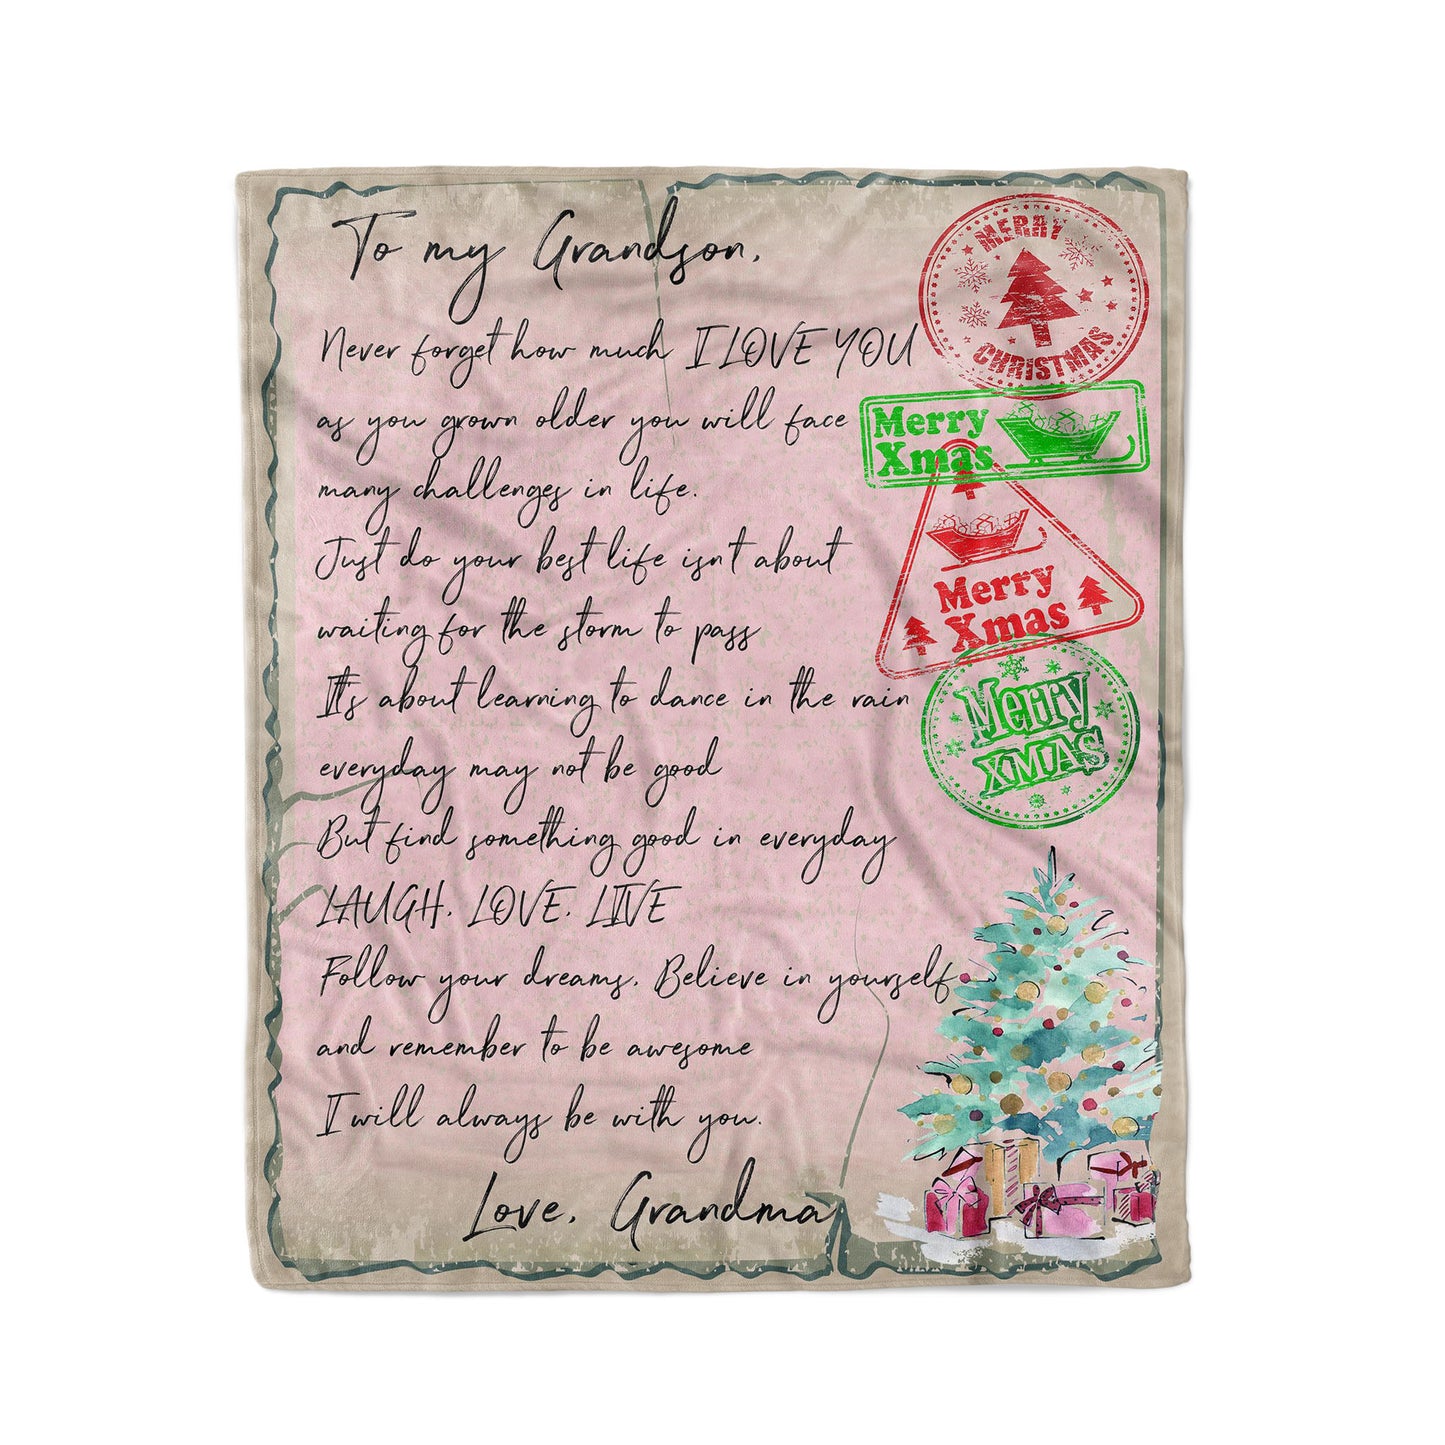 To my Grandson,
Never forget how much I LOVE YOU
as you grown older you will face
many challenges in life.
Just do your best life isn't about
waiting for the storm to pass
It's about learning to dance in the rain
everyday may not be good
But find something good in everyday
LAUGH, LOVE, LIVE
Follow your dreams, Believe in yourself
and remember to be awesome
I will always be with you.
Love, Grandma
MERRY
CHRISTMAS
Merry
Xmas
Merry
Xmas
Merry
XMAS